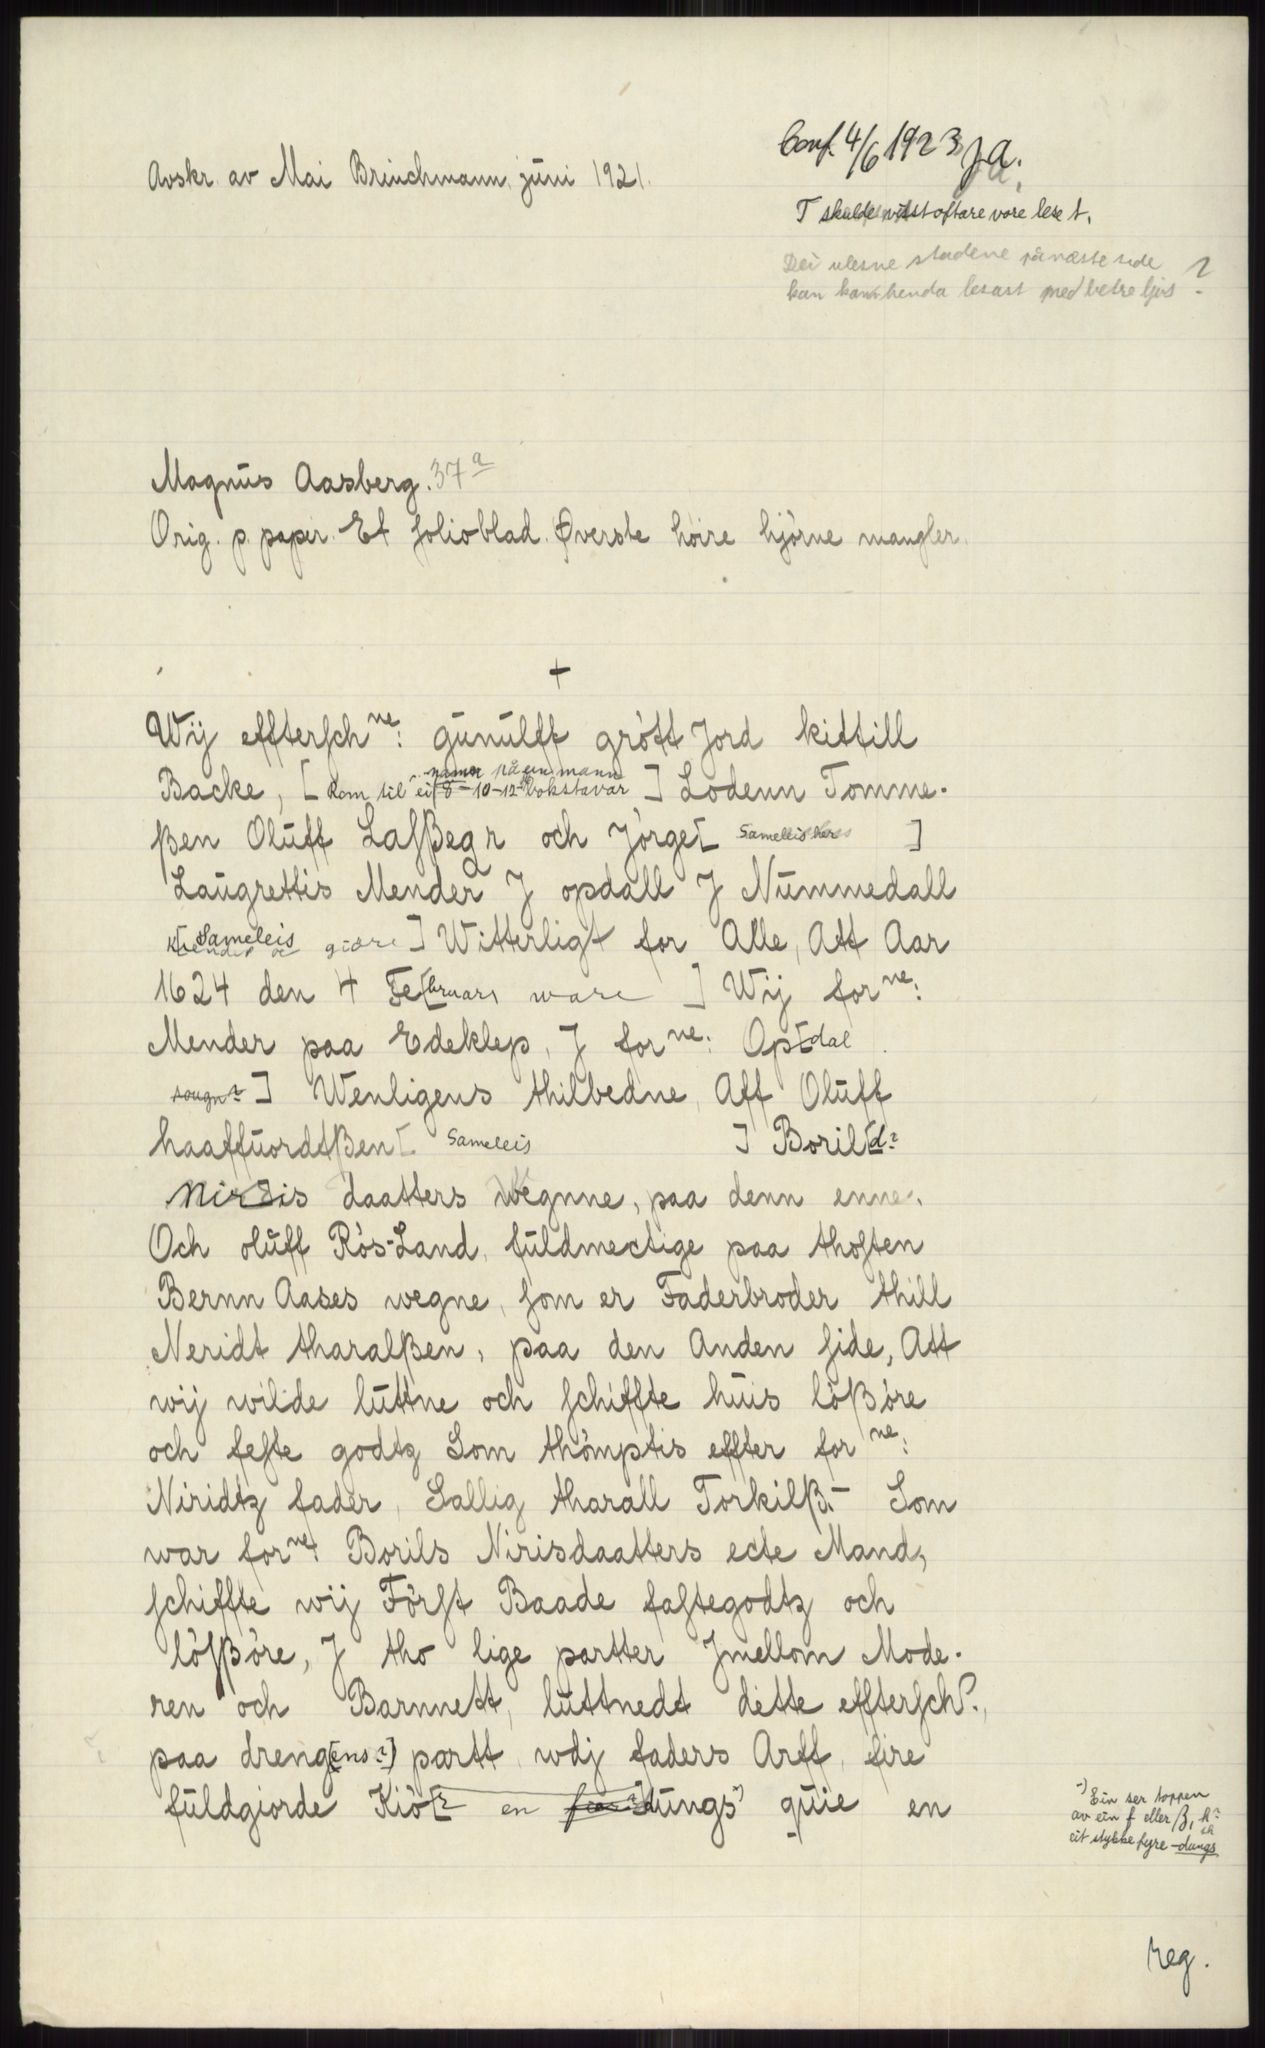 Avskr. av Mai Brinchmann, juni 1921.
Conf. 4/6 1923 JA.
T skulde visst oftare vore lese t.
Dei ulesne stadene på næste side
kan kanhenda lesast med betre ljos ?
Magnus Aasberg. 37 a
Orig. p. papir. Et folioblad. Øverste høire hjörne mangler.
+
Wij efftersch ne: gunulff grött Jord kittill
Backe, [ Rom til eit namn på ein mann 8-10-12 bokstavar ] Lodenn Tomme-
ßen Oluff Lasßegr och Jörge [ Sameleis her ]
Laugrettis Mender J opdall J Nummedall
[ Sameleis giøre ] Witterligt for Alle, Att Aar
1624 den 4 Fe[bruari ware ] Wij for ne:
Mender paa Edeklep, J for ne: Op[dal
sougn? ] Wenligens thilbedne, Aff Oluff
haaffuordtßen [ Sameleis ] Boril[d?
Nirsis daatters wegnne, paa denn enne,
Och oluff Rös-Land, fuldmectige paa thoften
Bernn Aases wegne, som er Faderbroder thill
Neridt tharalßen, paa den Anden side, Att
wij wilde luttne och schiffte huis lößöre
och feste godtz Som thömptis effter for ne:
Niridtz fader, Sallig tharall Torkilß.- Som
war for ne: Borils Nirisdaatters ecte Mand,
schiffte wij Först Baade fastegodtz och
lösßöre, J tho lige partter Jmellom Mode-
ren och Barnnett, luttnedt dette effterschr.,
paa dreng[ens?] partt, wdj faders Arff, fire
fuldgiorde Kiö[? en ]dungs*) quie en
*) Ein ser toppen
av ein f eller ß, k?
eit stykke fyre -dungs
reg.